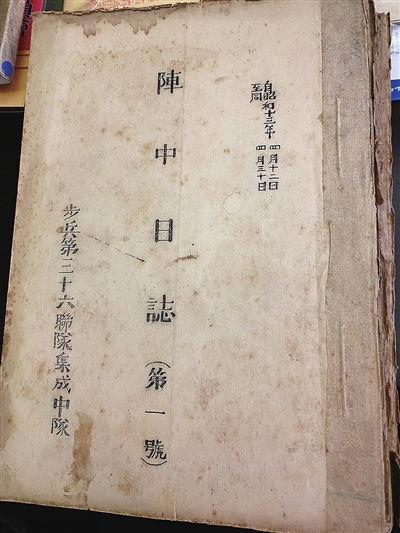 自昭和十三年 四月十二日
至同 四月三十日
陣中日誌（第一號）
步兵第三十六聯隊集成中隊